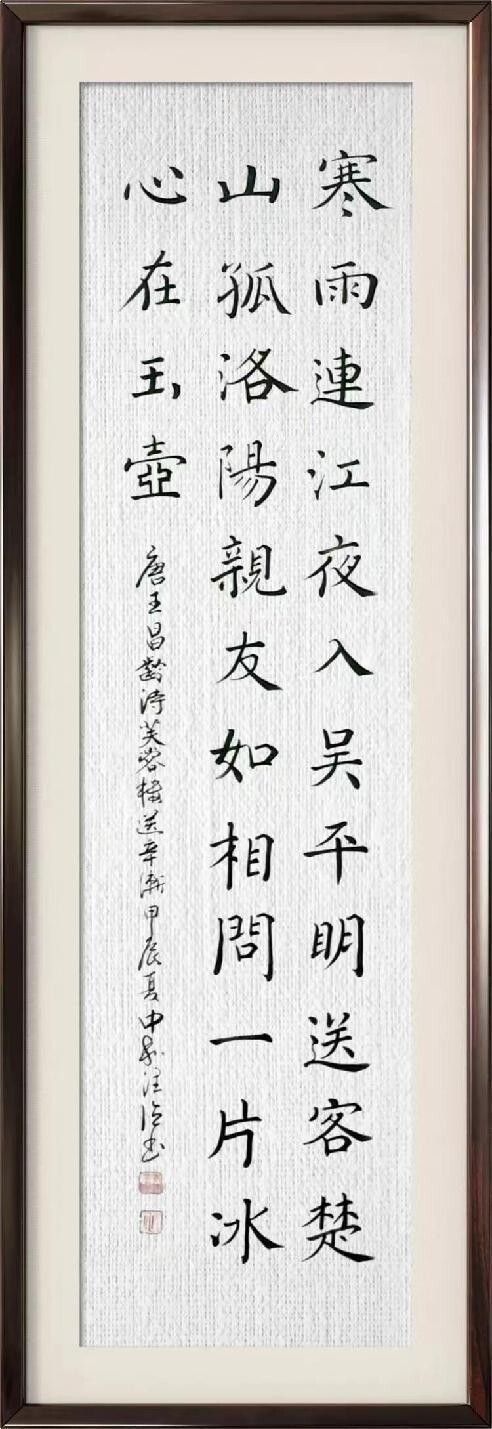 寒雨連江夜入吴平明送客楚
山孤洛陽親友如相問一片冰
心在玉壺
唐王昌齡詩芙蓉樓送辛漸甲辰夏中